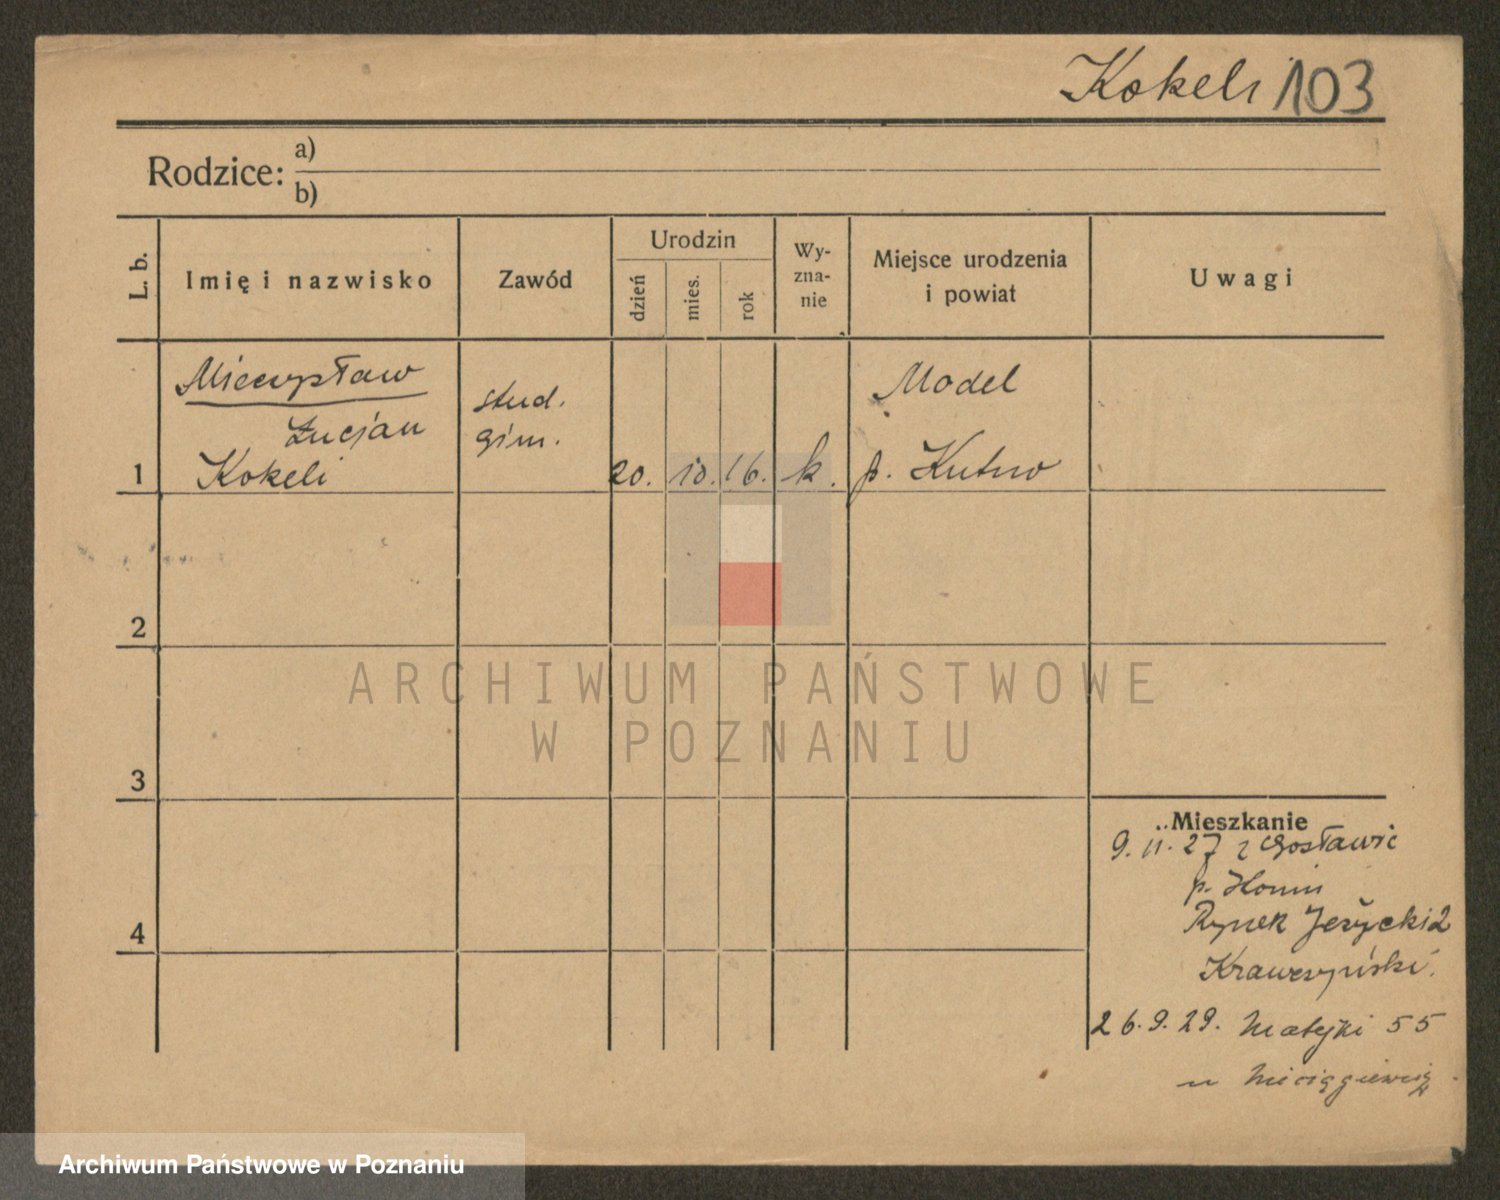 Kokeli 103
Rodzice: a)
b)
L. b.
Imię i nazwisko
Zawód
Urodzin
dzień
mies.
rok
Wy-
zna-
nie
Miejsce urodzenia
i powiat
Uwagi
1
Mieczysław
Łucjan
Kokeli
stud.
gim.
20. 10. 16. k.
Model
p. Kutno
2
3
4
Mieszkanie
9. 11. 27 z Gosławic
p. Konin
Rynek Jeżycki 2
Krawczyński.
26.9.29. Matejki 55
u
ARCHIWUM PAŃSTWOWE
W POZNANIU
Archiwum Państwowe w Poznaniu